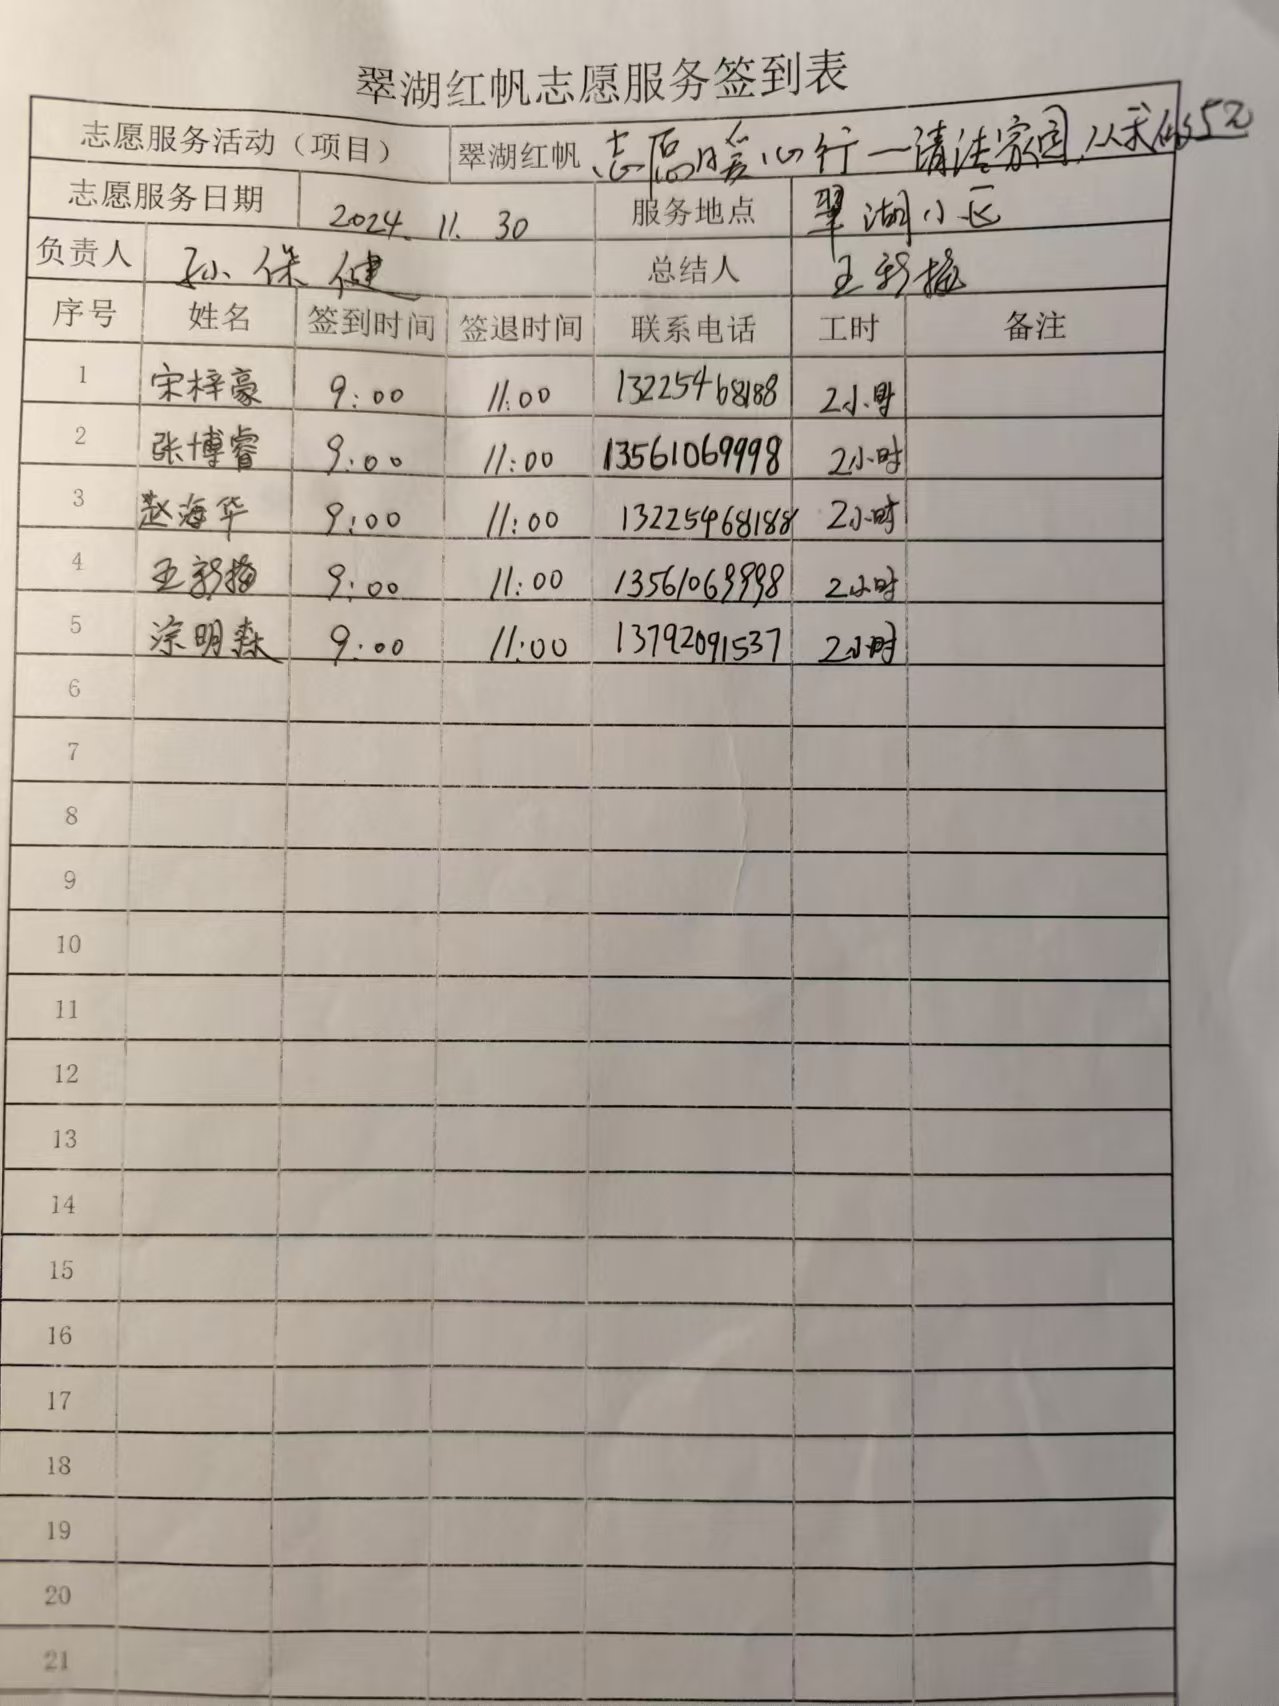 翠湖红帆志愿服务签到表
志愿服务活动（项目） 翠湖红帆 志愿暖心行一请洁家园,从我做
志愿服务日期 2024. 11. 30 服务地点 翠湖小区
负责人 孙保健 总结人 王新梅
序号 姓名 签到时间 签退时间 联系电话 工时 备注
1 宋梓豪 9:00 11:00 13225468188 2小时
2 张博睿 9:00 11:00 13561069998 2小时
3 赵海华 9:00 11:00 13225468188 2小时
4 王新梅 9:00 11:00 13561069998 2小时
5 涂明森 9:00 11:00 13792091537 2小时
6
7
8
9
10
11
12
13
14
15
16
17
18
19
20
21